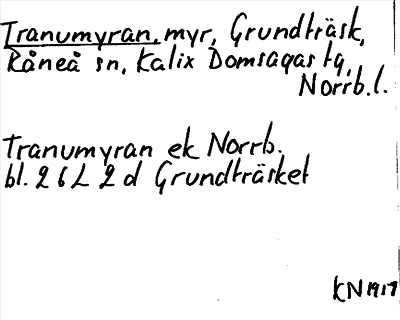 Tranumyran, myr, Grundträsk,
Råneå sn, Kalix Domsagas tg,
Norrb.l.
Tranumyran ek Norrb.
bl. 26L 2d Grundträsket
KN 1917